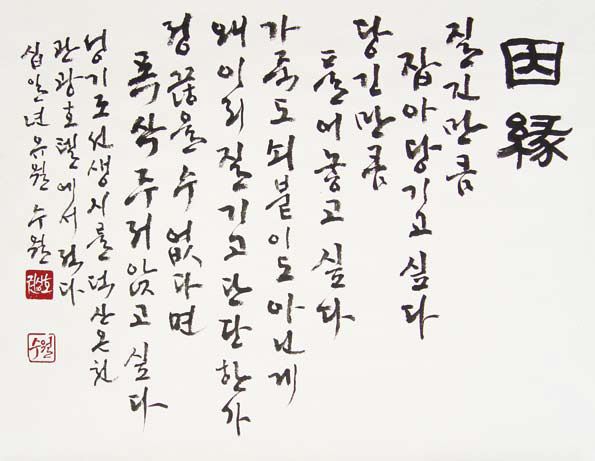 因緣
질긴만큼
잡아당기고 싶다
당긴만큼
풀어놓고 싶다
가죽도 쇠붙이도 아닌게
왜 이리 질기고 단단한가
정 끊을 수 없다면
폭삭 주저앉고 싶다
성기조 선생 시를 덕산온천
관광호텔에서 적다
십일년 유월 수월
수월